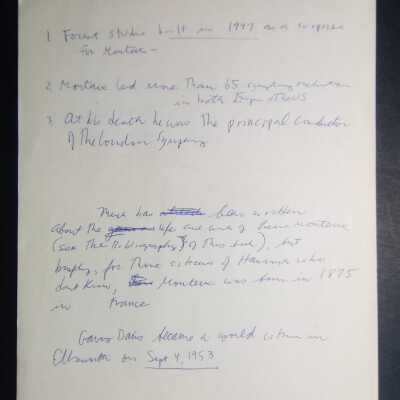 1. Forest Studio built in 1947 as a surprise
for Monteux —
2. Monteux led more than 65 symphony orchestras
in both Europe & the US
3. At his death he was the principal conductor
of the London Symphony
There has been written
about the life and work of Pierre Monteux
(see the Bibliography of this book), but
briefly, for those citizens of Hancock who
don't know, Monteux was born in 1875
in France
Garry Davis became a world citizen in
Ellsworth on Sept 4, 1953